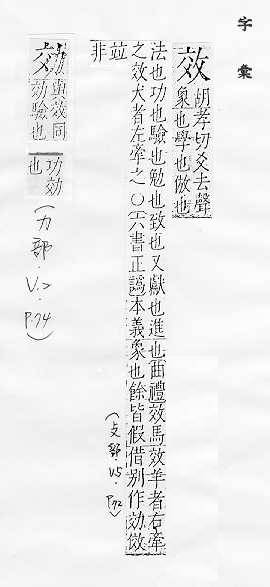 字彙
效 胡孝切爻去聲
象也學也倣也
法也功也驗也勉也致也又獻也進也曲禮效馬效羊者右牽
之效犬者左牽之○六書正譌本義象也餘皆假借别作効傚
竝
非
(攴部.V5.P72)
効 與效同
効驗也
功効
也
(力部.V.2.P.74)